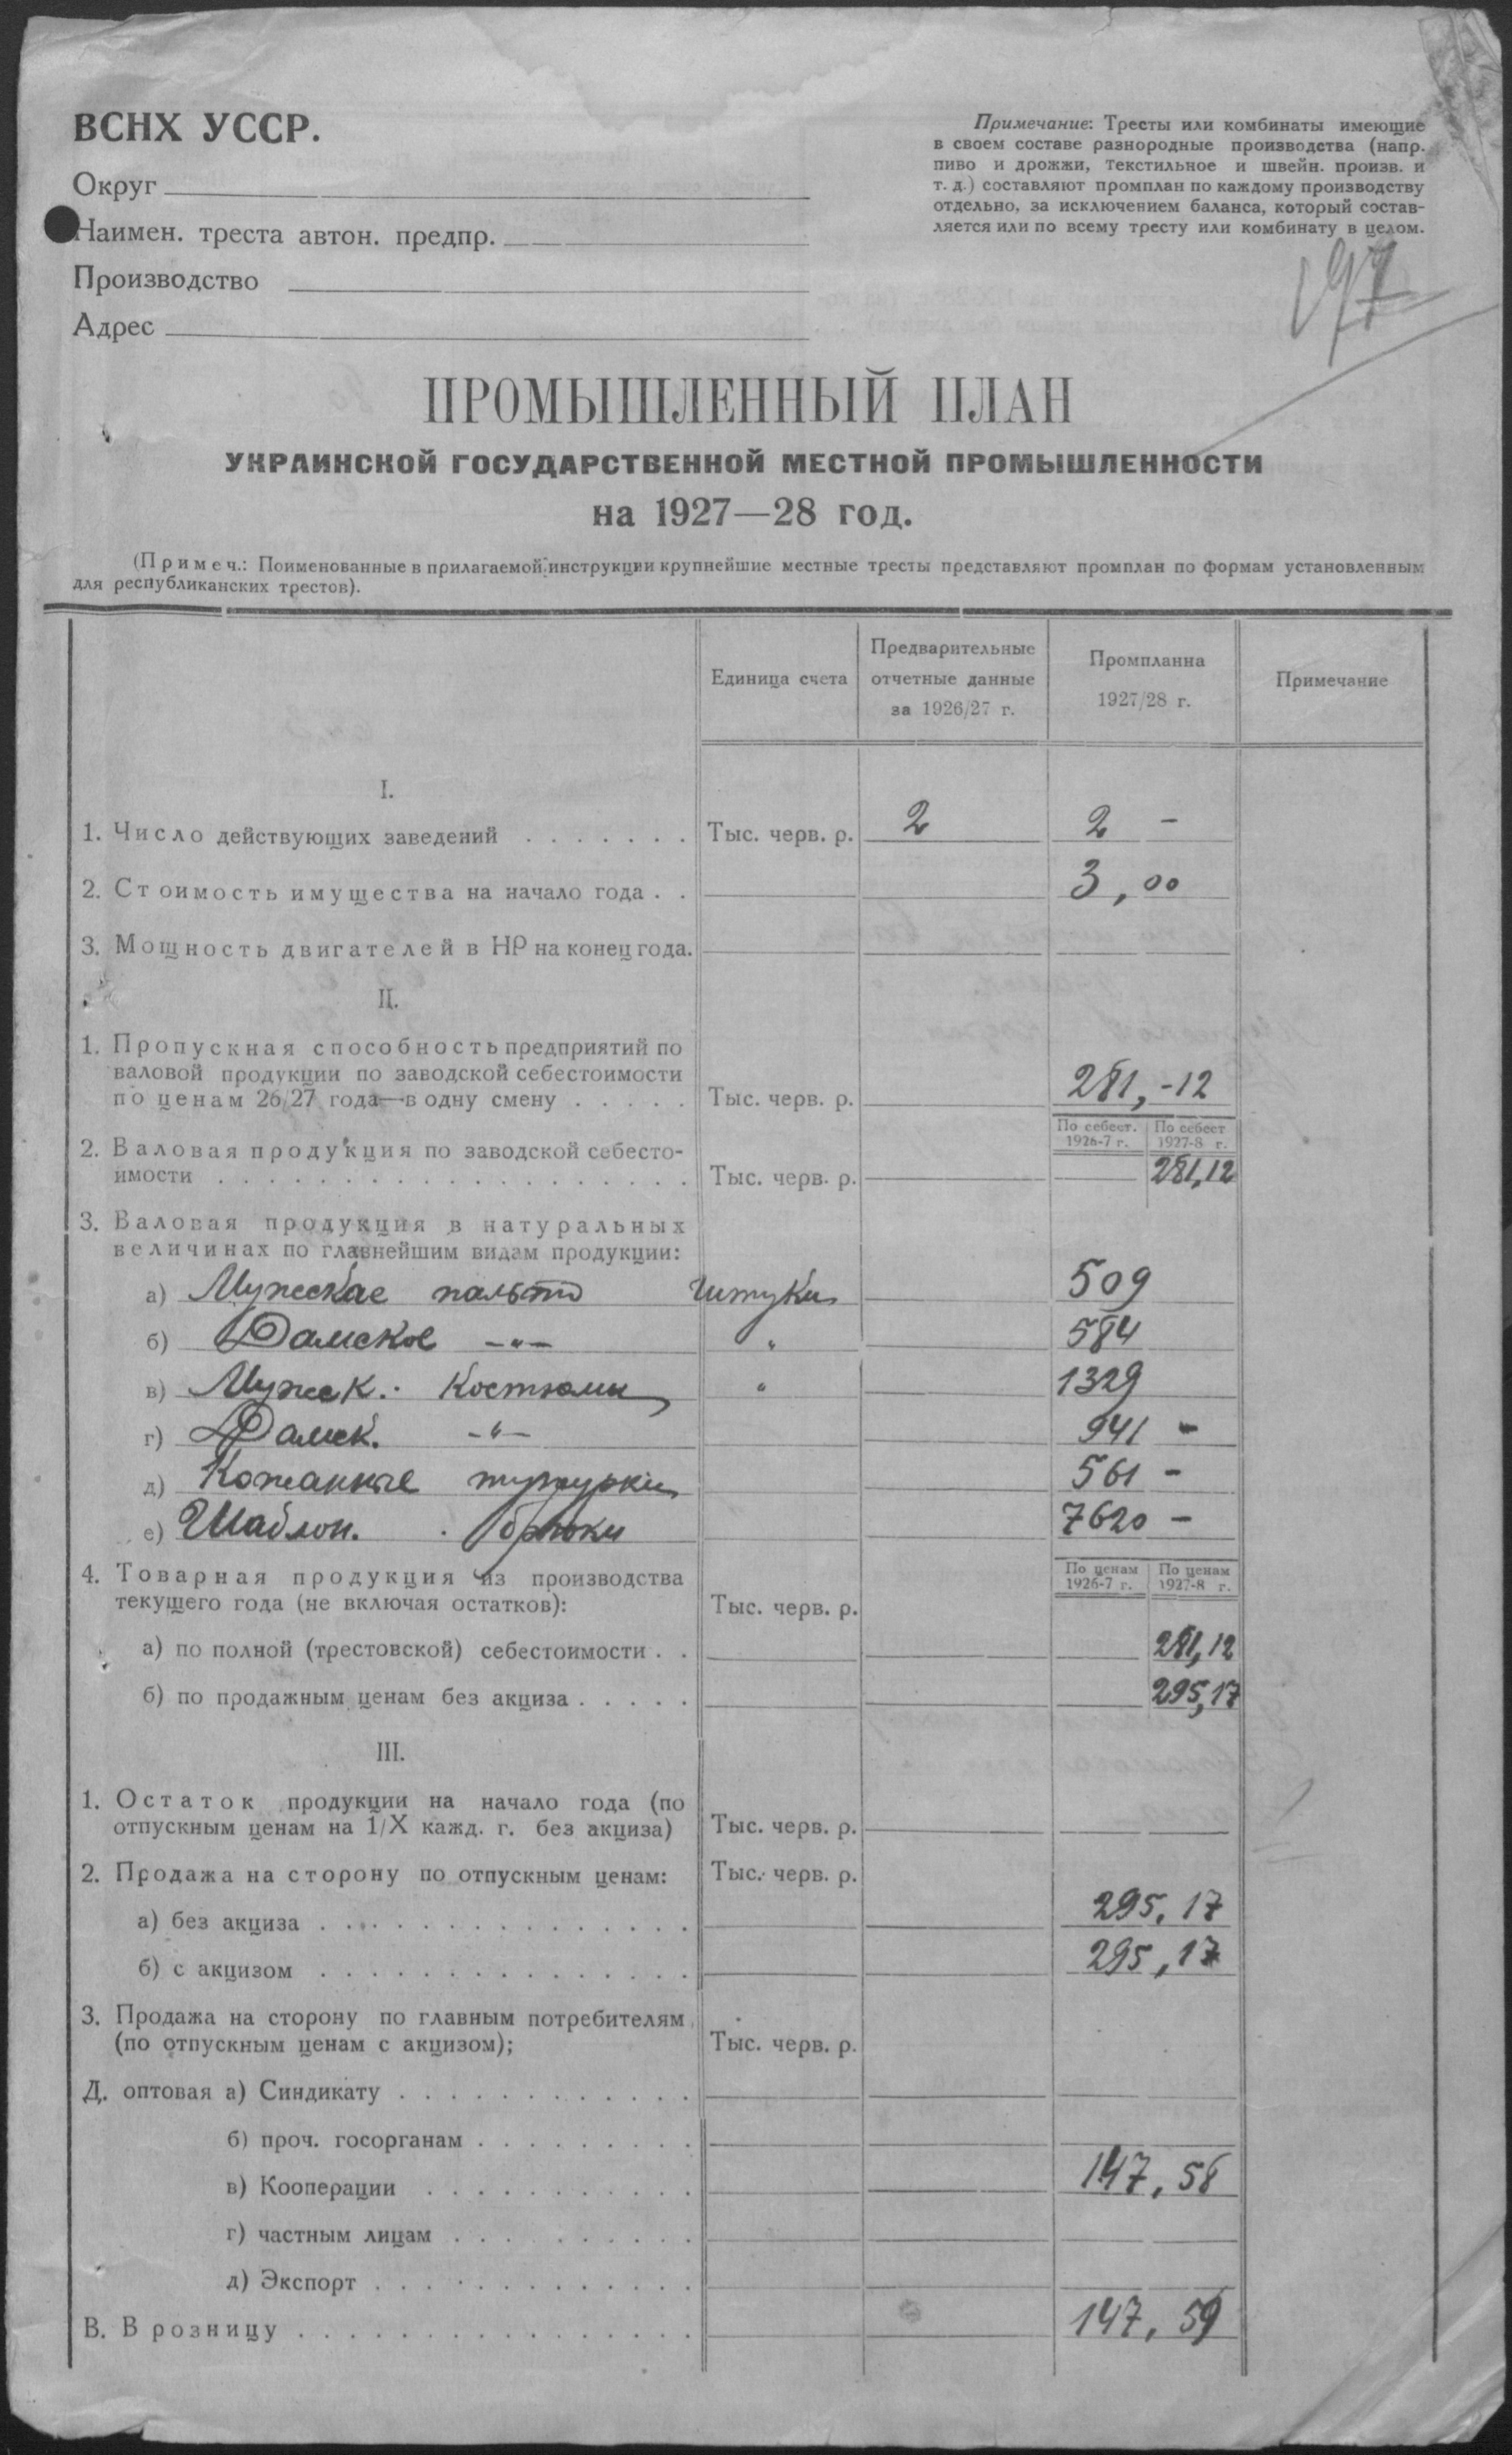 ВСНХ УССР.
Примечание: Тресты или комбинаты имеющие
в своем составе разнородные производства (напр.
пиво и дрожжи, текстильное и швейн. произв. и
т. д.) составляют промплан по каждому производству
отдельно, за исключением баланса, который состав-
ляется или по всему тресту или комбинату в целом.
Округ
Наимен. треста автон. предпр.
Производство
Адрес
97
ПРОМЫШЛЕННЫЙ ПЛАН
УКРАИНСКОЙ ГОСУДАРСТВЕННОЙ МЕСТНОЙ ПРОМЫШЛЕННОСТИ
на 1927—28 год.
(Примеч.: Поименованные в прилагаемой инструкции крупнейшие местные тресты представляют промплан по формам установленным
для республиканских трестов).
Единица счета
Предварительные
отчетные данные
за 1926/27 г.
Промпланна
1927/28 г.
Примечание
I.
1. Число действующих заведений . . . . . . . Тыс. черв. р. 2 2 -
2. Стоимость имущества на начало года . . 3,00
3. Мощность двигателей в НР на конец года.
II.
1. Пропускная способность предприятий по
валовой продукции по заводской себестоимости
по ценам 26/27 года—в одну смену . . . . . Тыс. черв. р. 281,-12
По себест. 1926-7 г. По себест 1927-8 г.
2. Валовая продукция по заводской себесто-
имости . . . . . . . . . . . . . . . . . . . Тыс. черв. р. 281,12
3. Валовая продукция в натуральных
величинах по главнейшим видам продукции:
а) Мужеские пальто штуки 509
б) Дамское -"- " 584
в) Мужск. костюмы " 1329
г) Дамск. -"- 941 -
д) Кожанные тужурки 561 -
е) Шаблон. брюки 7620 -
По ценам 1926-7 г. По ценам 1927-8 г.
4. Товарная продукция из производства
текущего года (не включая остатков): Тыс. черв. р.
а) по полной (трестовской) себестоимости . . 281,12
б) по продажным ценам без акциза . . . . . 295,17
III.
1. Остаток продукции на начало года (по
отпускным ценам на 1/X кажд. г. без акциза) Тыс. черв. р.
2. Продажа на сторону по отпускным ценам: Тыс. черв. р.
а) без акциза . . . . . . . . . . . . . . . 295,17
б) с акцизом . . . . . . . . . . . . . . . 295,17
3. Продажа на сторону по главным потребителям
(по отпускным ценам с акцизом); Тыс. черв. р.
Д. оптовая а) Синдикату . . . . . . . . . . . .
б) проч. госорганам . . . . . . . . .
в) Кооперации . . . . . . . . . . . 147,58
г) частным лицам . . . . . . . . . .
д) Экспорт . . . . . . . . . . . . .
В. В розницу . . . . . . . . . . . . . . . . 147,59